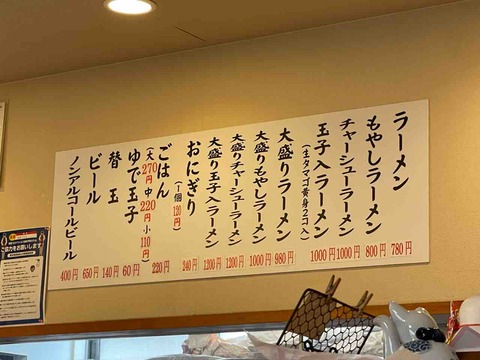 ラーメン 780円
もやしラーメン 800円
チャーシューラーメン 1000円
玉子入ラーメン 1000円
(生タマゴ黄身2コ入)
大盛りラーメン 980円
大盛りもやしラーメン 1000円
大盛りチャーシューラーメン 1200円
大盛り玉子入ラーメン 1200円
おにぎり 240円
(1個120円)
ごはん 220円
(大270円 中220円 小110円)
ゆで玉子 60円
替玉 140円
ビール 650円
ノンアルコールビール 400円
ご協力をお願いします